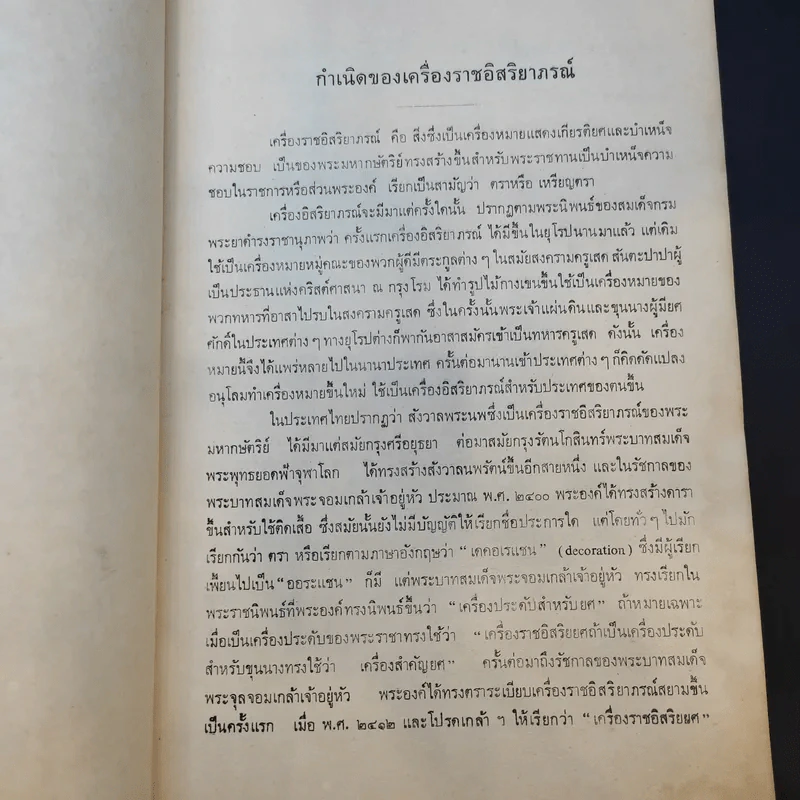 กำเนิดของเครื่องราชอิสริยาภรณ์
เครื่องราชอิสริยาภรณ์ คือ สิ่งซึ่งเป็นเครื่องหมายแสดงเกียรติยศและบำเหน็จ
ความชอบ เป็นของพระมหากษัตริย์ทรงสร้างขึ้นสำหรับพระราชทานเป็นบำเหน็จความ
ชอบในราชการหรือส่วนพระองค์ เรียกเป็นสามัญว่า ตราหรือ เหรียญตรา
เครื่องอิสริยาภรณ์จะมีมาแต่ครั้งใดนั้น ปรากฏตามพระนิพนธ์ของสมเด็จกรม
พระยาดำรงราชานุภาพว่า ครั้งแรกเครื่องอิสริยาภรณ์ ได้มีขึ้นในยุโรปนานมาแล้ว แต่เดิม
ใช้เป็นเครื่องหมายหมู่คณะของพวกผู้ดีมีตระกูลต่าง ๆ ในสมัยสงครามครูเสด สันตะปาปาผู้
เป็นประธานแห่งคริสต์ศาสนา ณ กรุงโรม ได้ทำรูปไม้กางเขนขึ้นใช้เป็นเครื่องหมายของ
พวกทหารที่อาสาไปรบในสงครามครูเสด ซึ่งในครั้งนั้นพระเจ้าแผ่นดินและขุนนางผู้มียศ
ศักดิ์ในประเทศต่าง ๆ ทางยุโรปต่างก็พากันอาสาสมัครเข้าเป็นทหารครูเสด ดังนั้น เครื่อง
หมายนี้จึงได้แพร่หลายไปในนานาประเทศ ครั้นต่อมานานเข้าประเทศต่าง ๆ ก็คิดดัดแปลง
อนุโลมทำเครื่องหมายขึ้นใหม่ ใช้เป็นเครื่องอิสริยาภรณ์สำหรับประเทศของตนขึ้น
ในประเทศไทยปรากฏว่า สังวาลพระนพซึ่งเป็นเครื่องราชอิสริยาภรณ์ของพระ
มหากษัตริย์ ได้มีมาแต่สมัยกรุงศรีอยุธยา ต่อมาสมัยกรุงรัตนโกสินทร์พระบาทสมเด็จ
พระพุทธยอดฟ้าจุฬาโลก ได้ทรงสร้างสังวาลนพรัตน์ขึ้นอีกสายหนึ่ง และในรัชกาลของ
พระบาทสมเด็จพระจอมเกล้าเจ้าอยู่หัว ประมาณ พ.ศ. ๒๔๐๐ พระองค์ได้ทรงสร้างดารา
ขึ้นสำหรับใช้ติดเสื้อ ซึ่งสมัยนั้นยังไม่มีบัญญัติให้เรียกชื่อประการใด แต่โดยทั่ว ๆ ไปมัก
เรียกกันว่า ตรา หรือเรียกตามภาษาอังกฤษว่า “เดคอเรแชน” (decoration) ซึ่งมีผู้เรียก
เพี้ยนไปเป็น “ออระแชน” ก็มี แต่พระบาทสมเด็จพระจอมเกล้าเจ้าอยู่หัว ทรงเรียกใน
พระราชนิพนธ์ที่พระองค์ทรงนิพนธ์ขึ้นว่า “เครื่องประดับสำหรับยศ” ถ้าหมายเฉพาะ
เมื่อเป็นเครื่องประดับของพระราชาทรงใช้ว่า “เครื่องราชอิสริยยศถ้าเป็นเครื่องประดับ
สำหรับขุนนางทรงใช้ว่า เครื่องสำคัญยศ” ครั้นต่อมาถึงรัชกาลของพระบาทสมเด็จ
พระจุลจอมเกล้าเจ้าอยู่หัว พระองค์ได้ทรงตราระเบียบเครื่องราชอิสริยาภรณ์สยามขึ้น
เป็นครั้งแรก เมื่อ พ.ศ. ๒๔๑๒ และโปรดเกล้า ฯ ให้เรียกว่า “เครื่องราชอิสริยยศ”